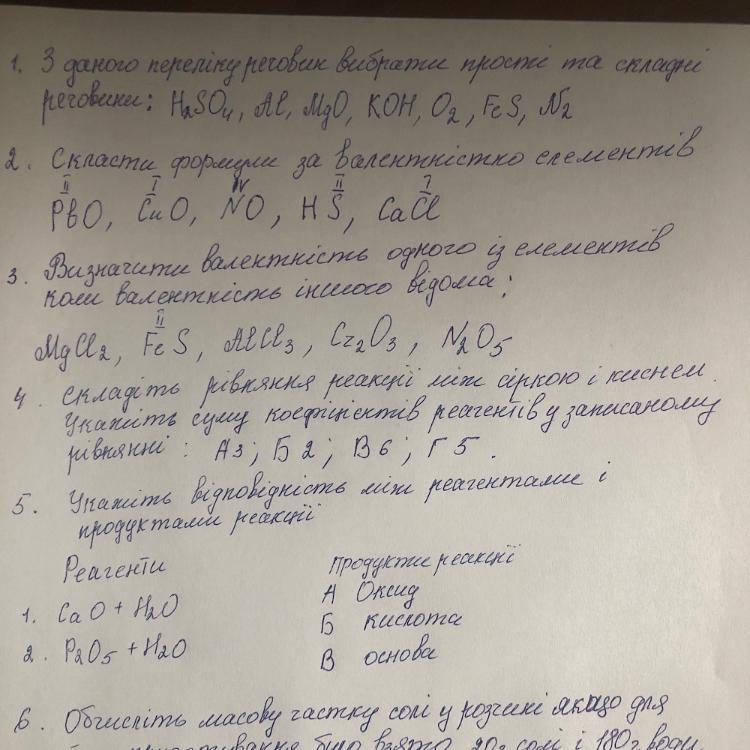 1. З даного переліку речовин вибрати прості та складні
речовини: H₂SO₄, Al, MgO, KOH, O₂, FeS, N₂
2. Скласти формули за валентністю елементів
II I IV II I
PbO, CuO, NO, HS, CaCl
3. Визначити валентність одного із елементів
коли валентність іншого відома:
II
MgCl₂, FeS, AlCl₃, Cr₂O₃, N₂O₅
4. Складіть рівняння реакції між сіркою і киснем.
Укажіть суму коефіцієнтів реагентів у записаному
рівнянні: А 3; Б 2; В 6; Г 5.
5. Укажіть відповідність між реагентами і
продуктами реакції
Реагенти Продукти реакції
А Оксид
1. CaO + H₂O
Б кислота
2. P₂O₅ + H₂O
В основа
6. Обчисліть масову частку солі у розчині якщо для
було взято 20г солі і 180г води